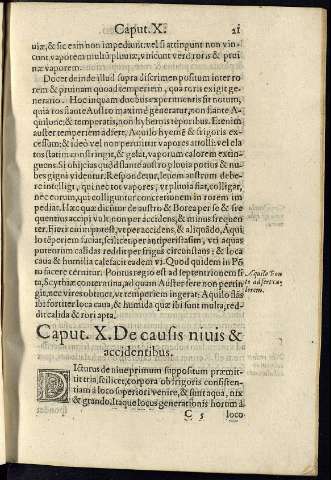 Caput. X. 21
uiæ, & sic eam non impediunt. vel si attingunt non vin-
cunt vaporem multũ pluuiæ, vincunt verò roris & prui
næ vaporem.
Docet deinde illud supra discrimen positum inter ro
rem & pruinam quoad temperiem, qua roris exigit ge-
neratio. Hoc inquam duobus experimentis sit notum,
quia ros flante Austro maximè generatur, non flante A-
quilone; & temperatis, non hybernis téporibus. Etenim
auster temperiem adfert, Aquilo hyemẽ & frigoris ex-
cessum; & ideò vel non permittit vapores attolli: vel ela
tos statim constringit, & gelat, vaporum calorem extin-
guens. Si obijcias quòd flante austro pluuia potius & nu-
bes gigni videntur. Respondetur, leuem austrum debe-
re intelligi, qui nec tot vapores, vt pluuia fiat, colligar,
nec eorum, quot colliguntur concretionem in rorem im
pediat. Hæc quæ dicuntur de austris & Borea per se & fre
quentius accipi vult non per accidens, & minus frequen
ter. Fieri enim potest, vt per accidens, & aliquãdo, Aqui
lo tẽperiem faciat, scilicet per antiperistasim, vti aquas
puteorum calidas reddit per frigus circonstans; & loca
caua & humilia calefacit eadem vi. Quod quidem in Põ
to facere cernitur. Pontus regio est ad septentrionem si
ta, Scythiæ contermina, ad quam Auster fere non pertin
git, nec vires obtinet, vt temperiem ingerat: Aquilo flãs
ibi fortiter loca caua, & humida quæ ibi sunt multa, red-
dit calida & rori apta.
Aquilo Pon
to adfert ca
lorem.
Caput. X. De causis niuis &
accidentibus.
DIcturus de niue primum suppositum præmit-
tit tria, scilicet, corpora ob frigoris consisten-
tiam à loco superiori venire, & sunt aqua, nix
& grando. Itaque locus generationis horum à
C 5 loco